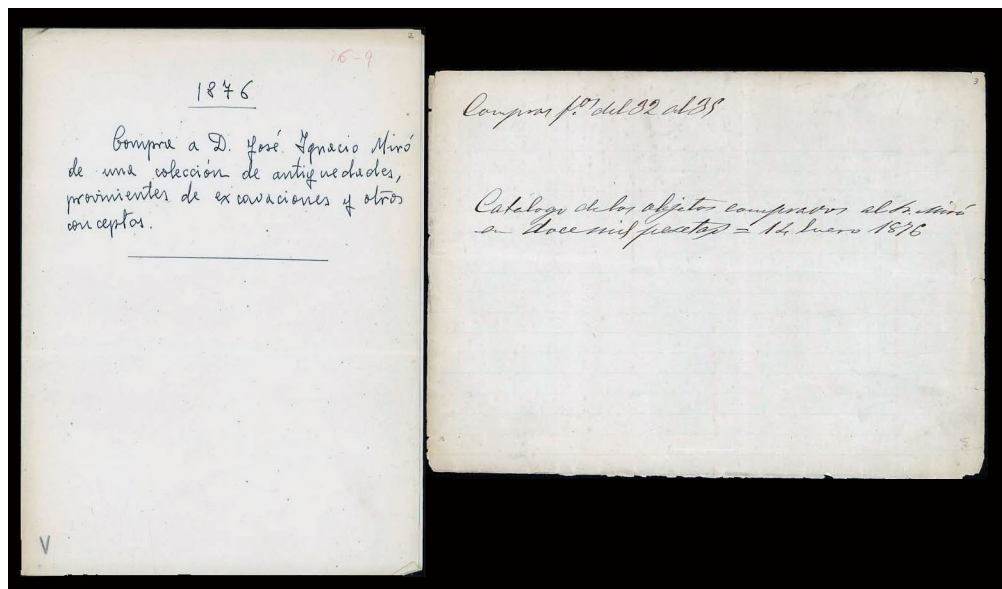 2
76-9
1876
Compra a D. José Ignacio Miró
de una colección de antiguedades,
provinientes de excavaciones y otros
conceptos.
V
3
Compras fos del 32 al 35
Catálogo de los objetos comprados al Sr. Miró
en doce mil pesetas = 14 Enero 1876